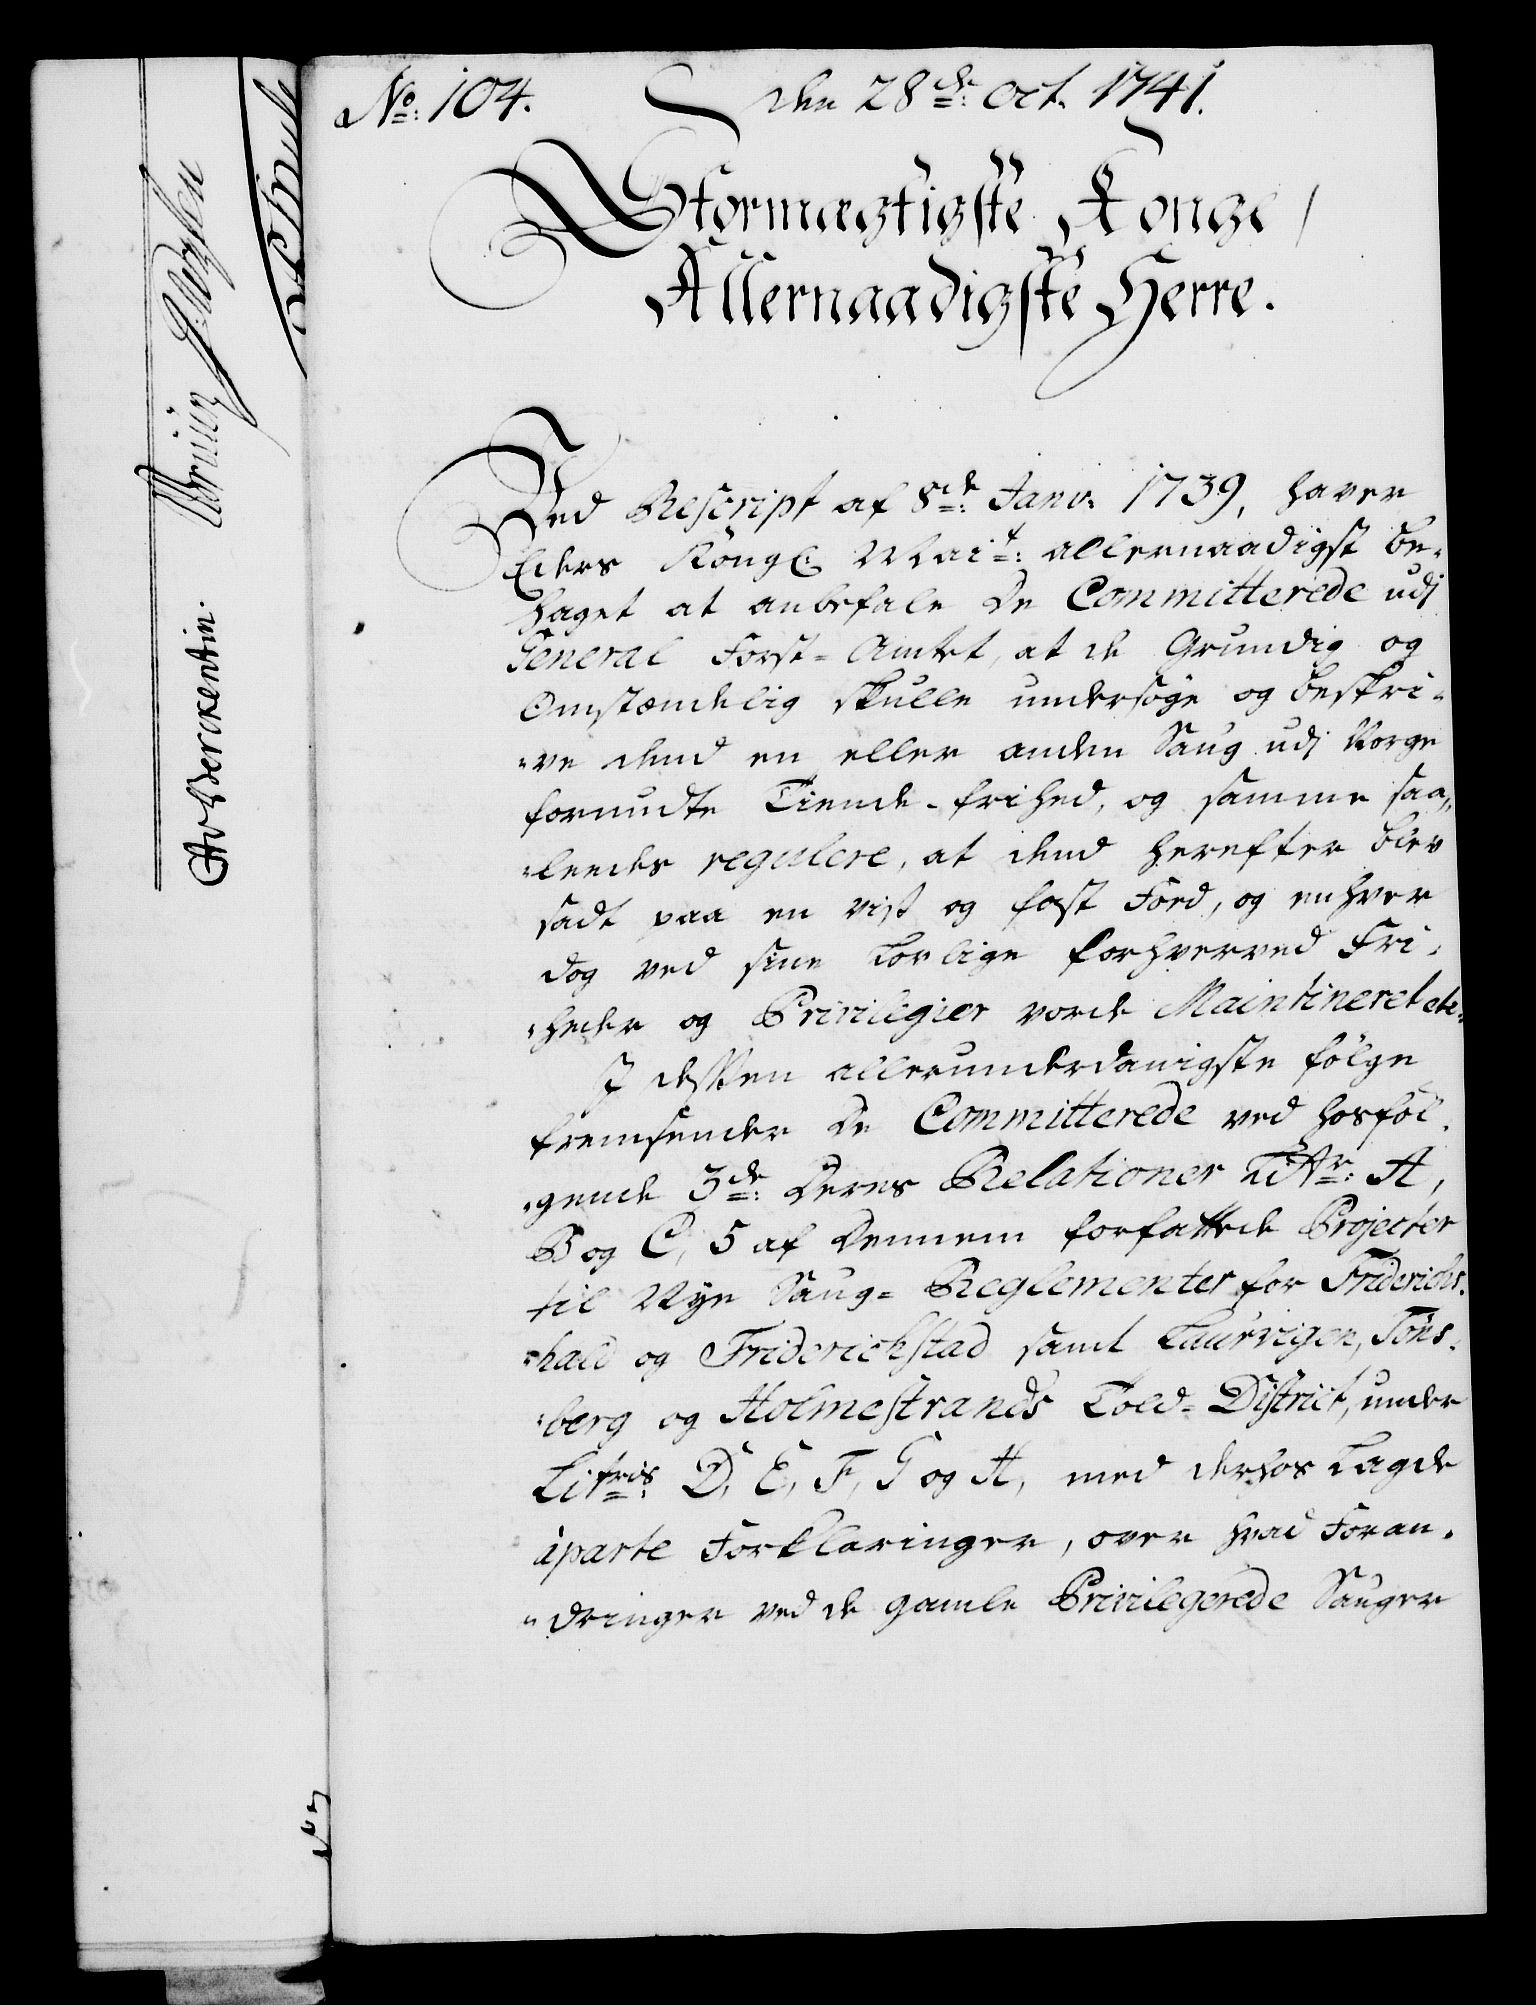 No: 104. den 28de: Oct. 1741.
Stormægtigste Konge /
Allernaadigste Herre.
Ved Rescript af 8de: Janv: 1739, haver
Eders Kongl: Mait: allernaadigst be-
haget at anbefale De Committerede udj
General Forst-Amtet, at de Grundig og
Omstændelig skulle undersøge og beskri-
-ve dend en eller anden Saug udj Norge
forundte Tiende-frihed, og samme saa,,
-leedes regulere, at dend herefter blev
sadt paa en vist og fast Foed, og enhver
dog ved sine Lovlige forhverved Fri-
-heder og Privilegier vorde Maintineret etc:
I dessen allerunderdanigste følge
fremsender De Committerede ved hosføl-
-gende 3de: Deres Relationer Littr: A,
B og C, 5 af Dennem forfattede Projecter
til Nye Saug-Reglementer for Friderichs-
-hald og Friderichstad samt Laurvigen, Tøns-
-berg og Holmestrands Told-District, under
Littris: D, E, F, G og H, med derhos Lagde
àparte Forklaringer, over hvad Foran-
-dringer ved de gamle Privilegerede Sauger
CA v Berckentin.